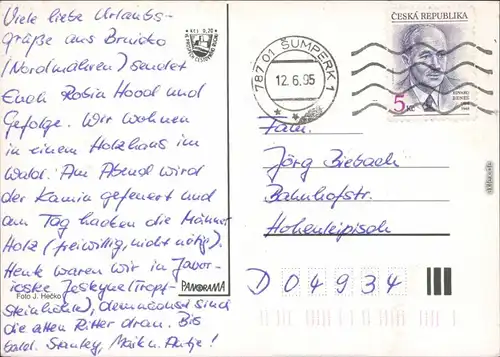 Viele liebe Urlaubs-
grüße aus Brníčko
(Nordmähren) sendet
Euch Robin Hood und
Gefolge. Wir wohnen
in einem Holzhaus im
Wald. Am Abend wird
der Kamin gefeuert und
am Tag hacken die Männer
Holz (freiwillig, nicht nötig).
Heute waren wir in Javor-
Jeskyne (Tropf-
steinhöhle), demnächst sind
die alten Ritter dran. Bis
bald. Maik u. Antje!
Foto J. Hečko
PANORAMA
Kčs 0,20
787 01 ŠUMPERK 1
12.6.95
ČESKÁ REPUBLIKA
5 Kč
EDVARD
BENEŠ
Fam.
Jörg Biebach
Bahnhofstr.
Hohenleipisch
D 04934